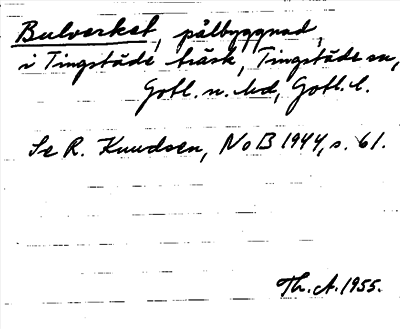 Bulverket, pålbyggnad,
i Tingstäde träsk, Tingstäde sn,
Gotl. n. hd, Gotl. l.
Se R. Knudsen, NoB 1944, s. 61.
Th. A. 1955.